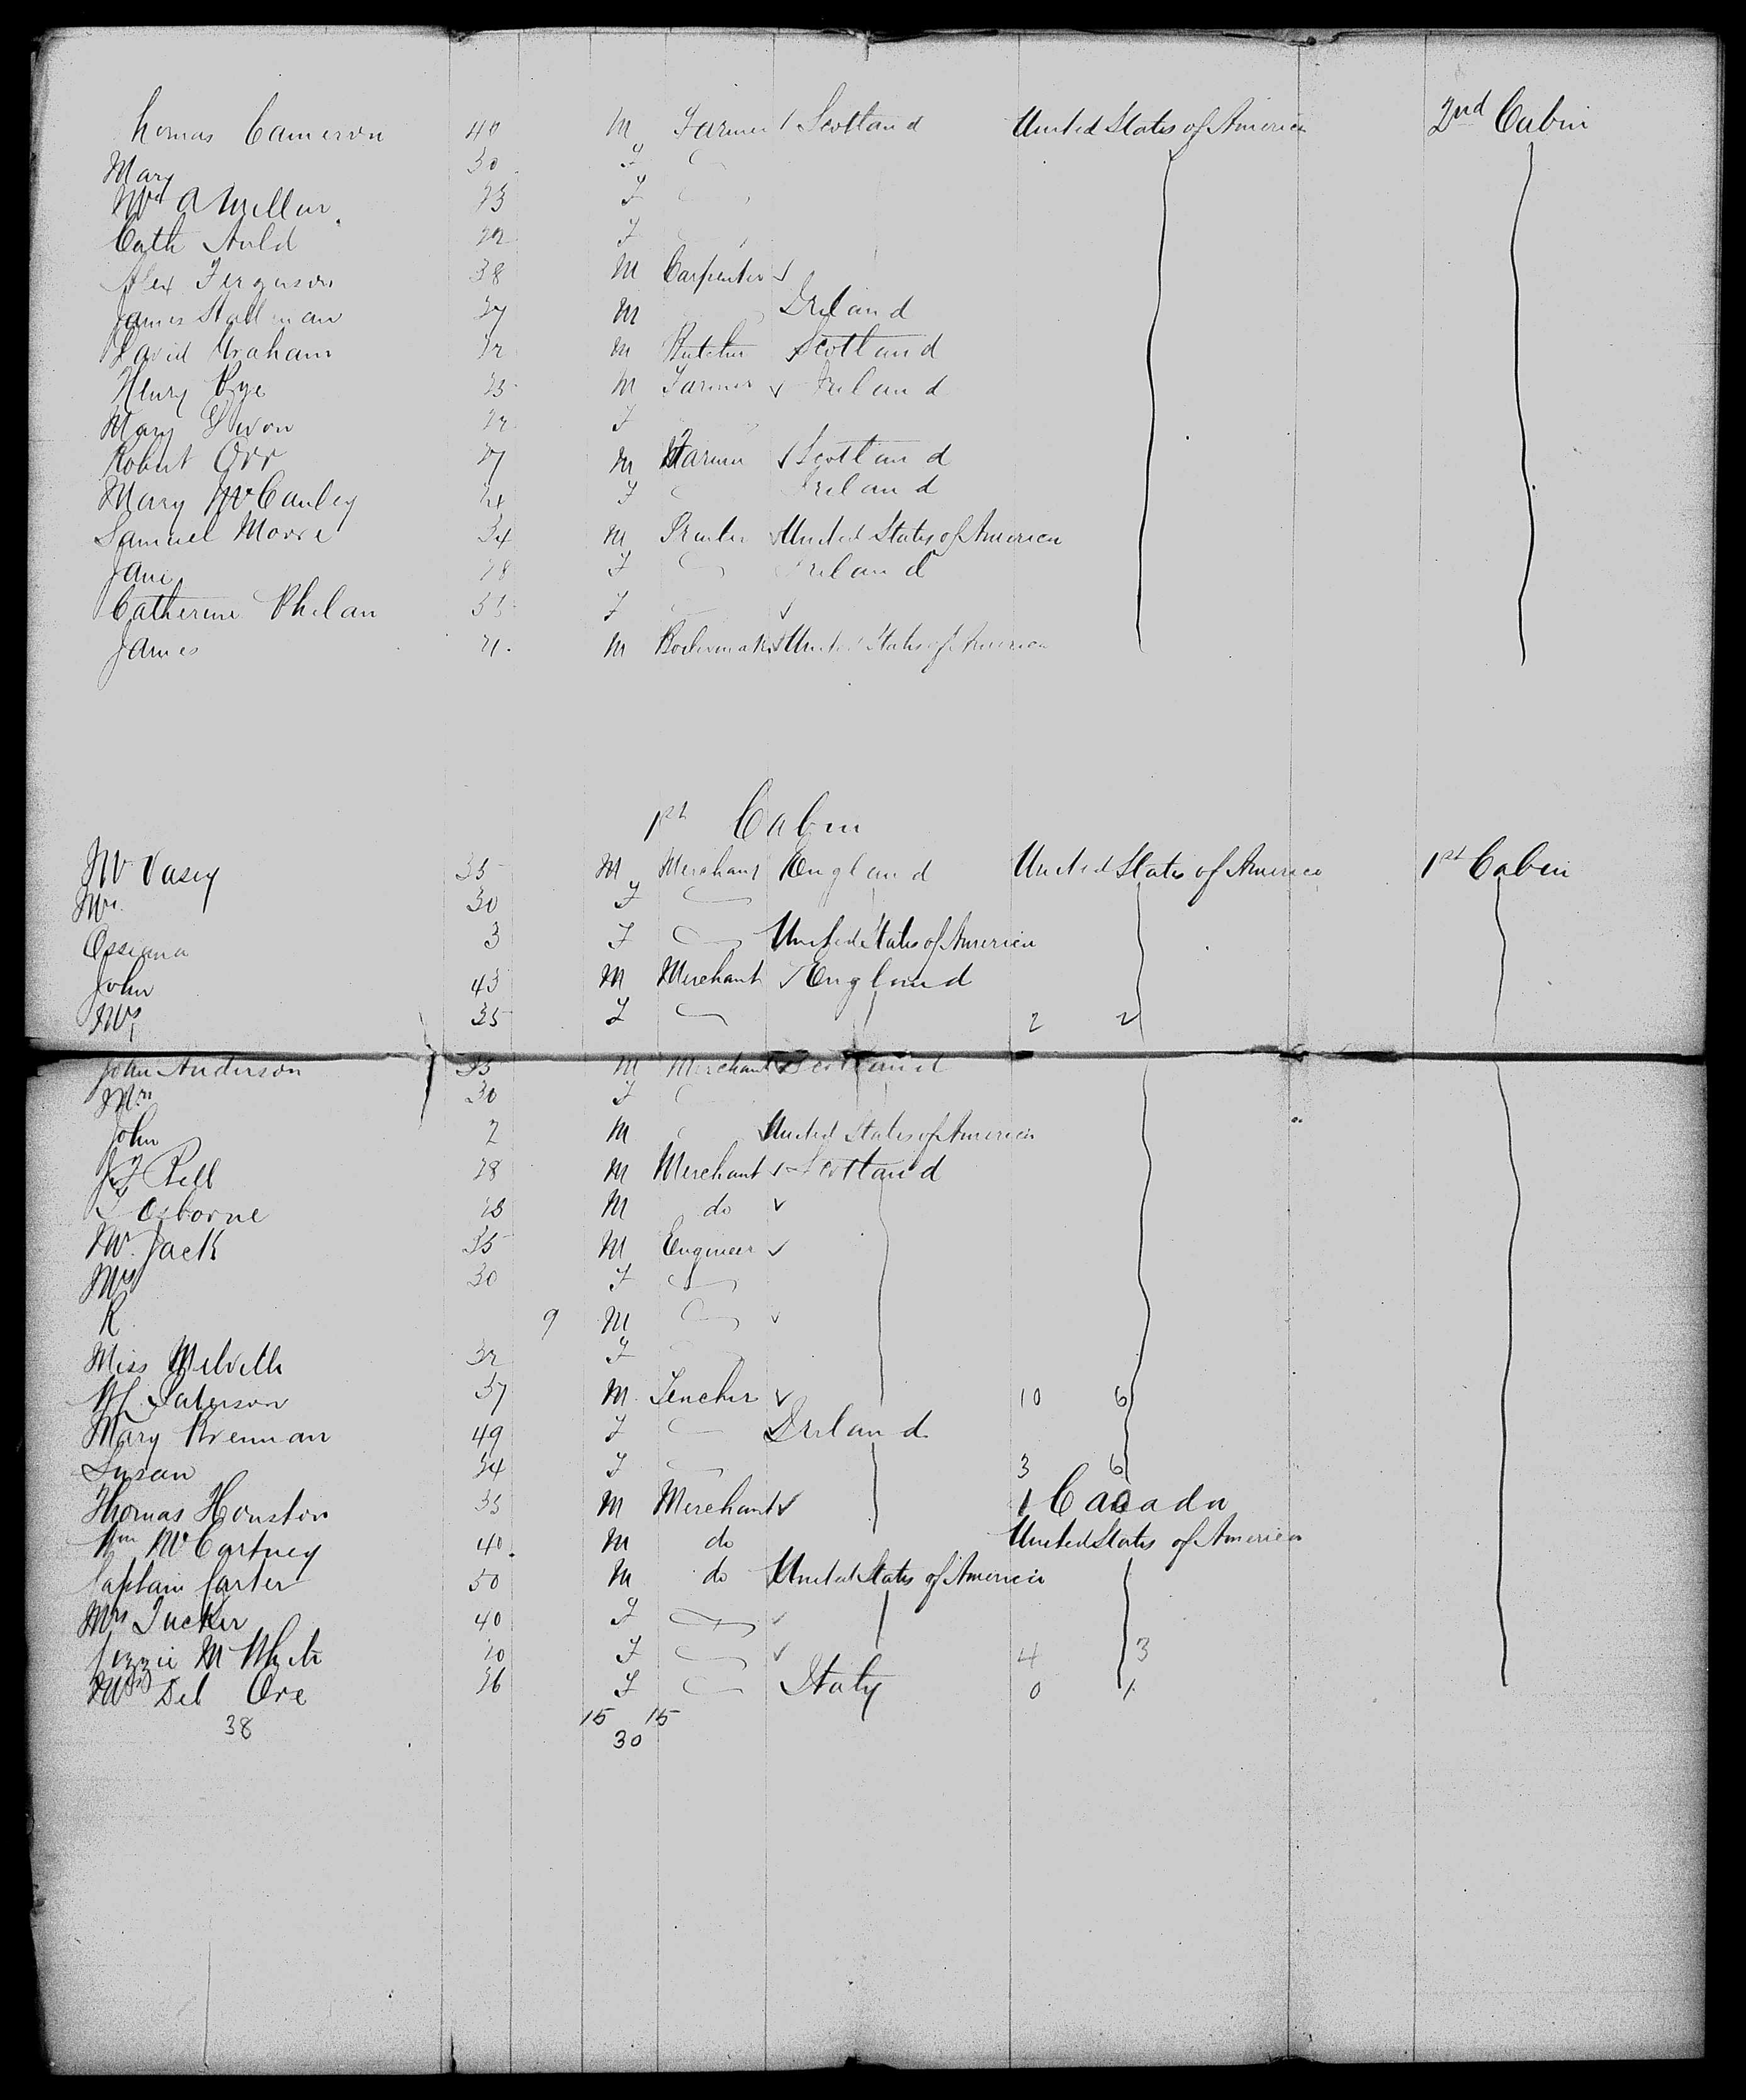 Thomas Cameron 40 M Farmer Scotland United States of America 2nd Cabin
Mary 30 F
Mrs A Miller 23 F
Cath Auld 22 F
Alex Ferguson 38 M Carpenter
James M Ireland
David Graham 32 M Butcher Scotland
Henry Pye M Farmer Ireland
Mary F
Robert Orr 27 M Farmer Scotland
Mary McCauley 24 F Ireland
Samuel Moore 34 M United States of America
Jane 28 F Ireland
Catherine Phelan F
James 21 M Boilermaker United States of America
1st Cabin
Mr Vasey 35 M Merchant England United States of America 1st Cabin
Mrs 30 F
3 F United States of America
John 43 M Merchant England
Mrs 35 F 2 2
John Anderson 35 M Merchant Scotland
Mrs 30 F
John 2 M United States of America
Bell 28 M Merchant Scotland
Osborne M do
W. Jack 35 M Engineer
Mrs 30 F
R 9 M
Miss Melville 32 F
Paterson 37 M Teacher 10 6
Mary Brennan 49 F Ireland
Susan 34 F 3 6
Thomas Houston 35 M Merchant 1 Canada
Wm McCartney 40 M do United States of America
Captain Carter 50 M do United States of America
Mrs Tucker 40 F
Lizzie M White 20 F 4 3
Mrs Del Ore 26 F Italy 0 1
38 15 15
30